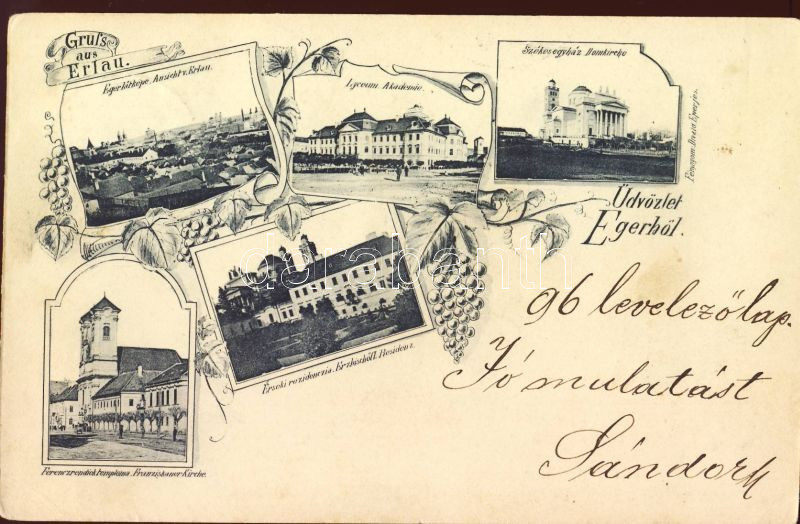 Gruſs
aus
Erlau.
Eger látképe. Ansicht v. Erlau.
Lyceum. Akademie.
Székesegyház Domkirche
Üdvözlet
Egerből.
Érseki rezidenczia. Erzbischöfl. Residenz.
Ferenczrendiek temploma. Franziskaner Kirche.
96 levelezőlap.
Jó mulatást
Sándor
darabanth